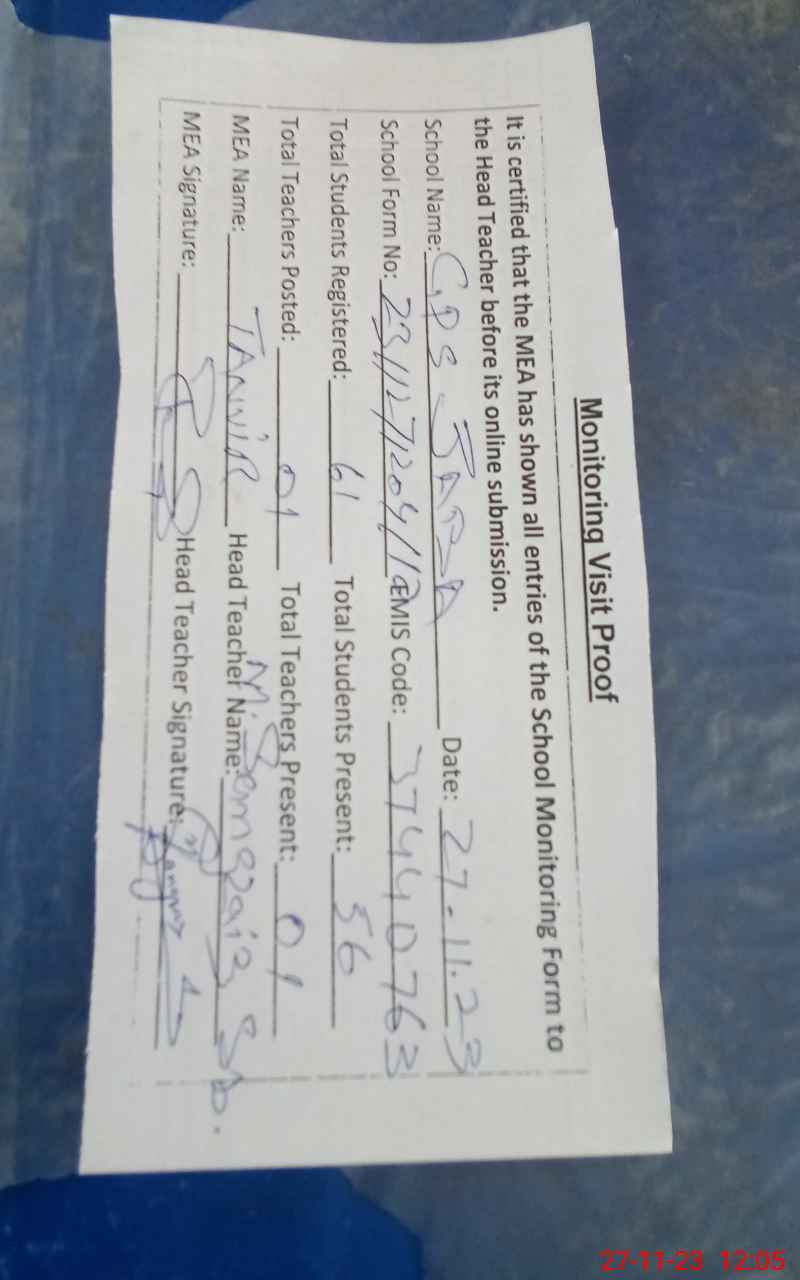 Monitoring Visit Proof
It is certified that the MEA has shown all entries of the School Monitoring Form to
the Head Teacher before its online submission.
School Name: GPS Date: 27-11.23
School Form No: EMIS Code: 37440763
Total Students Registered: 61 Total Students Present: 56
Total Teachers Posted: 01 Total Teachers Present: 01
MEA Name: TANVIR Head Teacher Name: M.
MEA Signature: Head Teacher Signature:
27-11-23 12:05